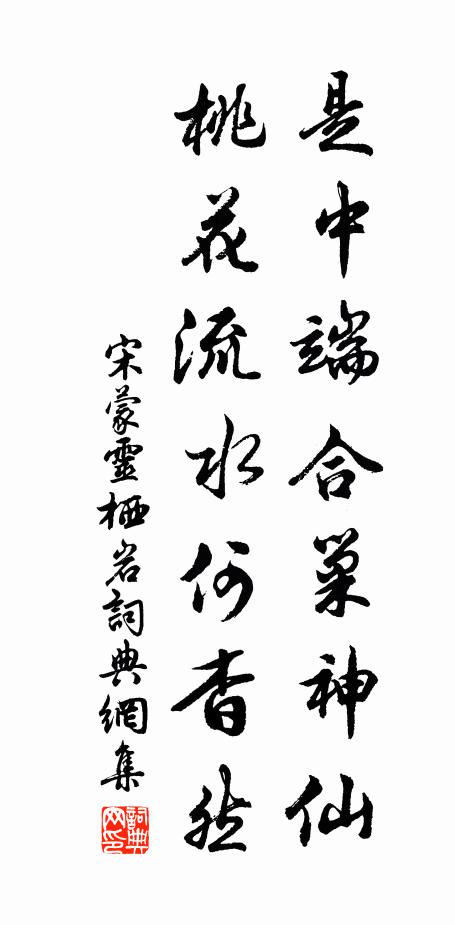 是中端合巢神仙
桃花流水何杳然
宋蒙靈栖岩詞典網集
詞典网印